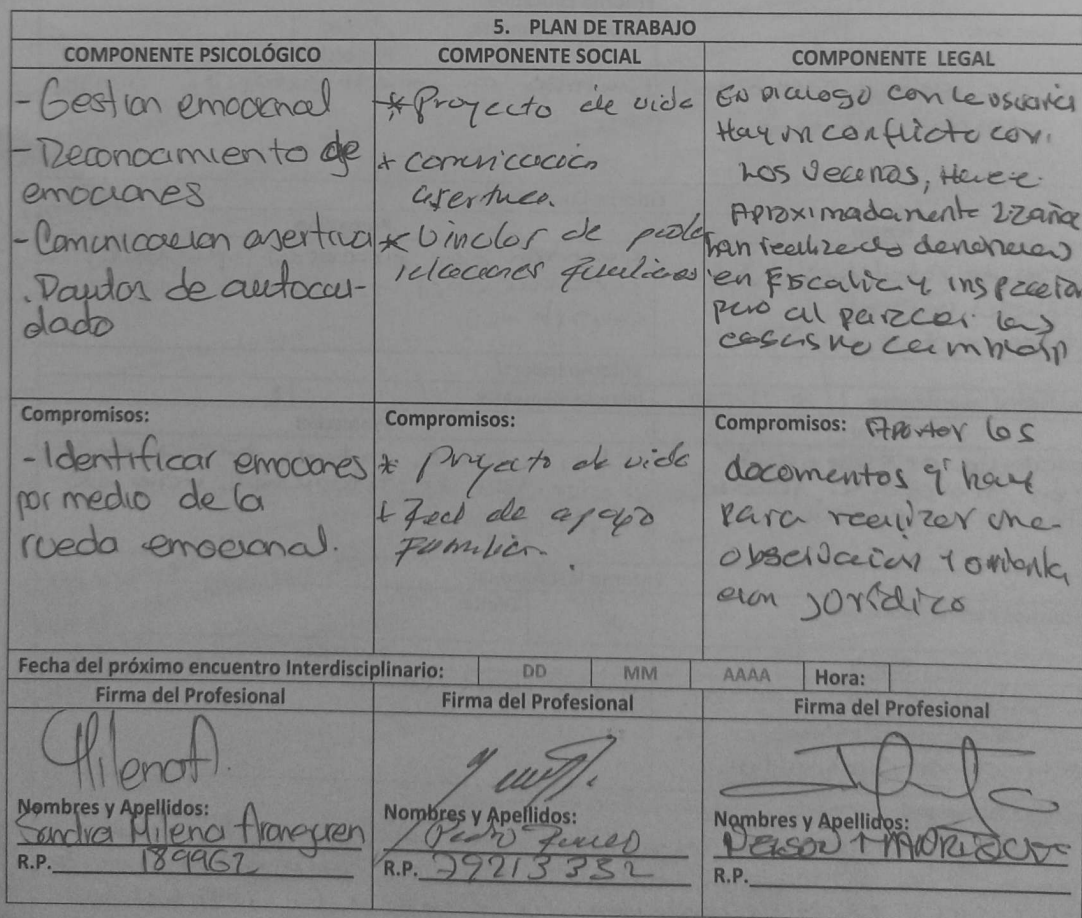 5. PLAN DE TRABAJO
COMPONENTE PSICOLÓGICO
COMPONENTE SOCIAL
COMPONENTE LEGAL
- Gestion emocional
- Reconocimiento de
emociones
- Comunicacion asertiva
. Pautas de autocui-
dado
* Proyecto de vida
* comunicación
asertiva.
* Vinclos de
relaciones familiares
En Dialogo con la usuaria
Hay un conflicto con
Los vecinos, Hace
Aproximadamente años
han realizado denuncias
en Fiscalia y inspección
pero al parecer las
cosas no cambian
Compromisos:
- Identificar emociones
por medio de la
rueda emocional.
Compromisos:
* Proyecto de vida
* Red de apoyo
Familiar.
Compromisos: Aportar los
documentos q' hay
para realizar una
observacion y orienta
cion jorídico
Fecha del próximo encuentro Interdisciplinario: DD MM AAAA Hora:
Firma del Profesional
Firma del Profesional
Firma del Profesional
Nombres y Apellidos:
Sandra Milena Aranguren
R.P. 189962
Nombres y Apellidos:
Pedro
R.P. 79213332
Nombres y Apellidos:
R.P.